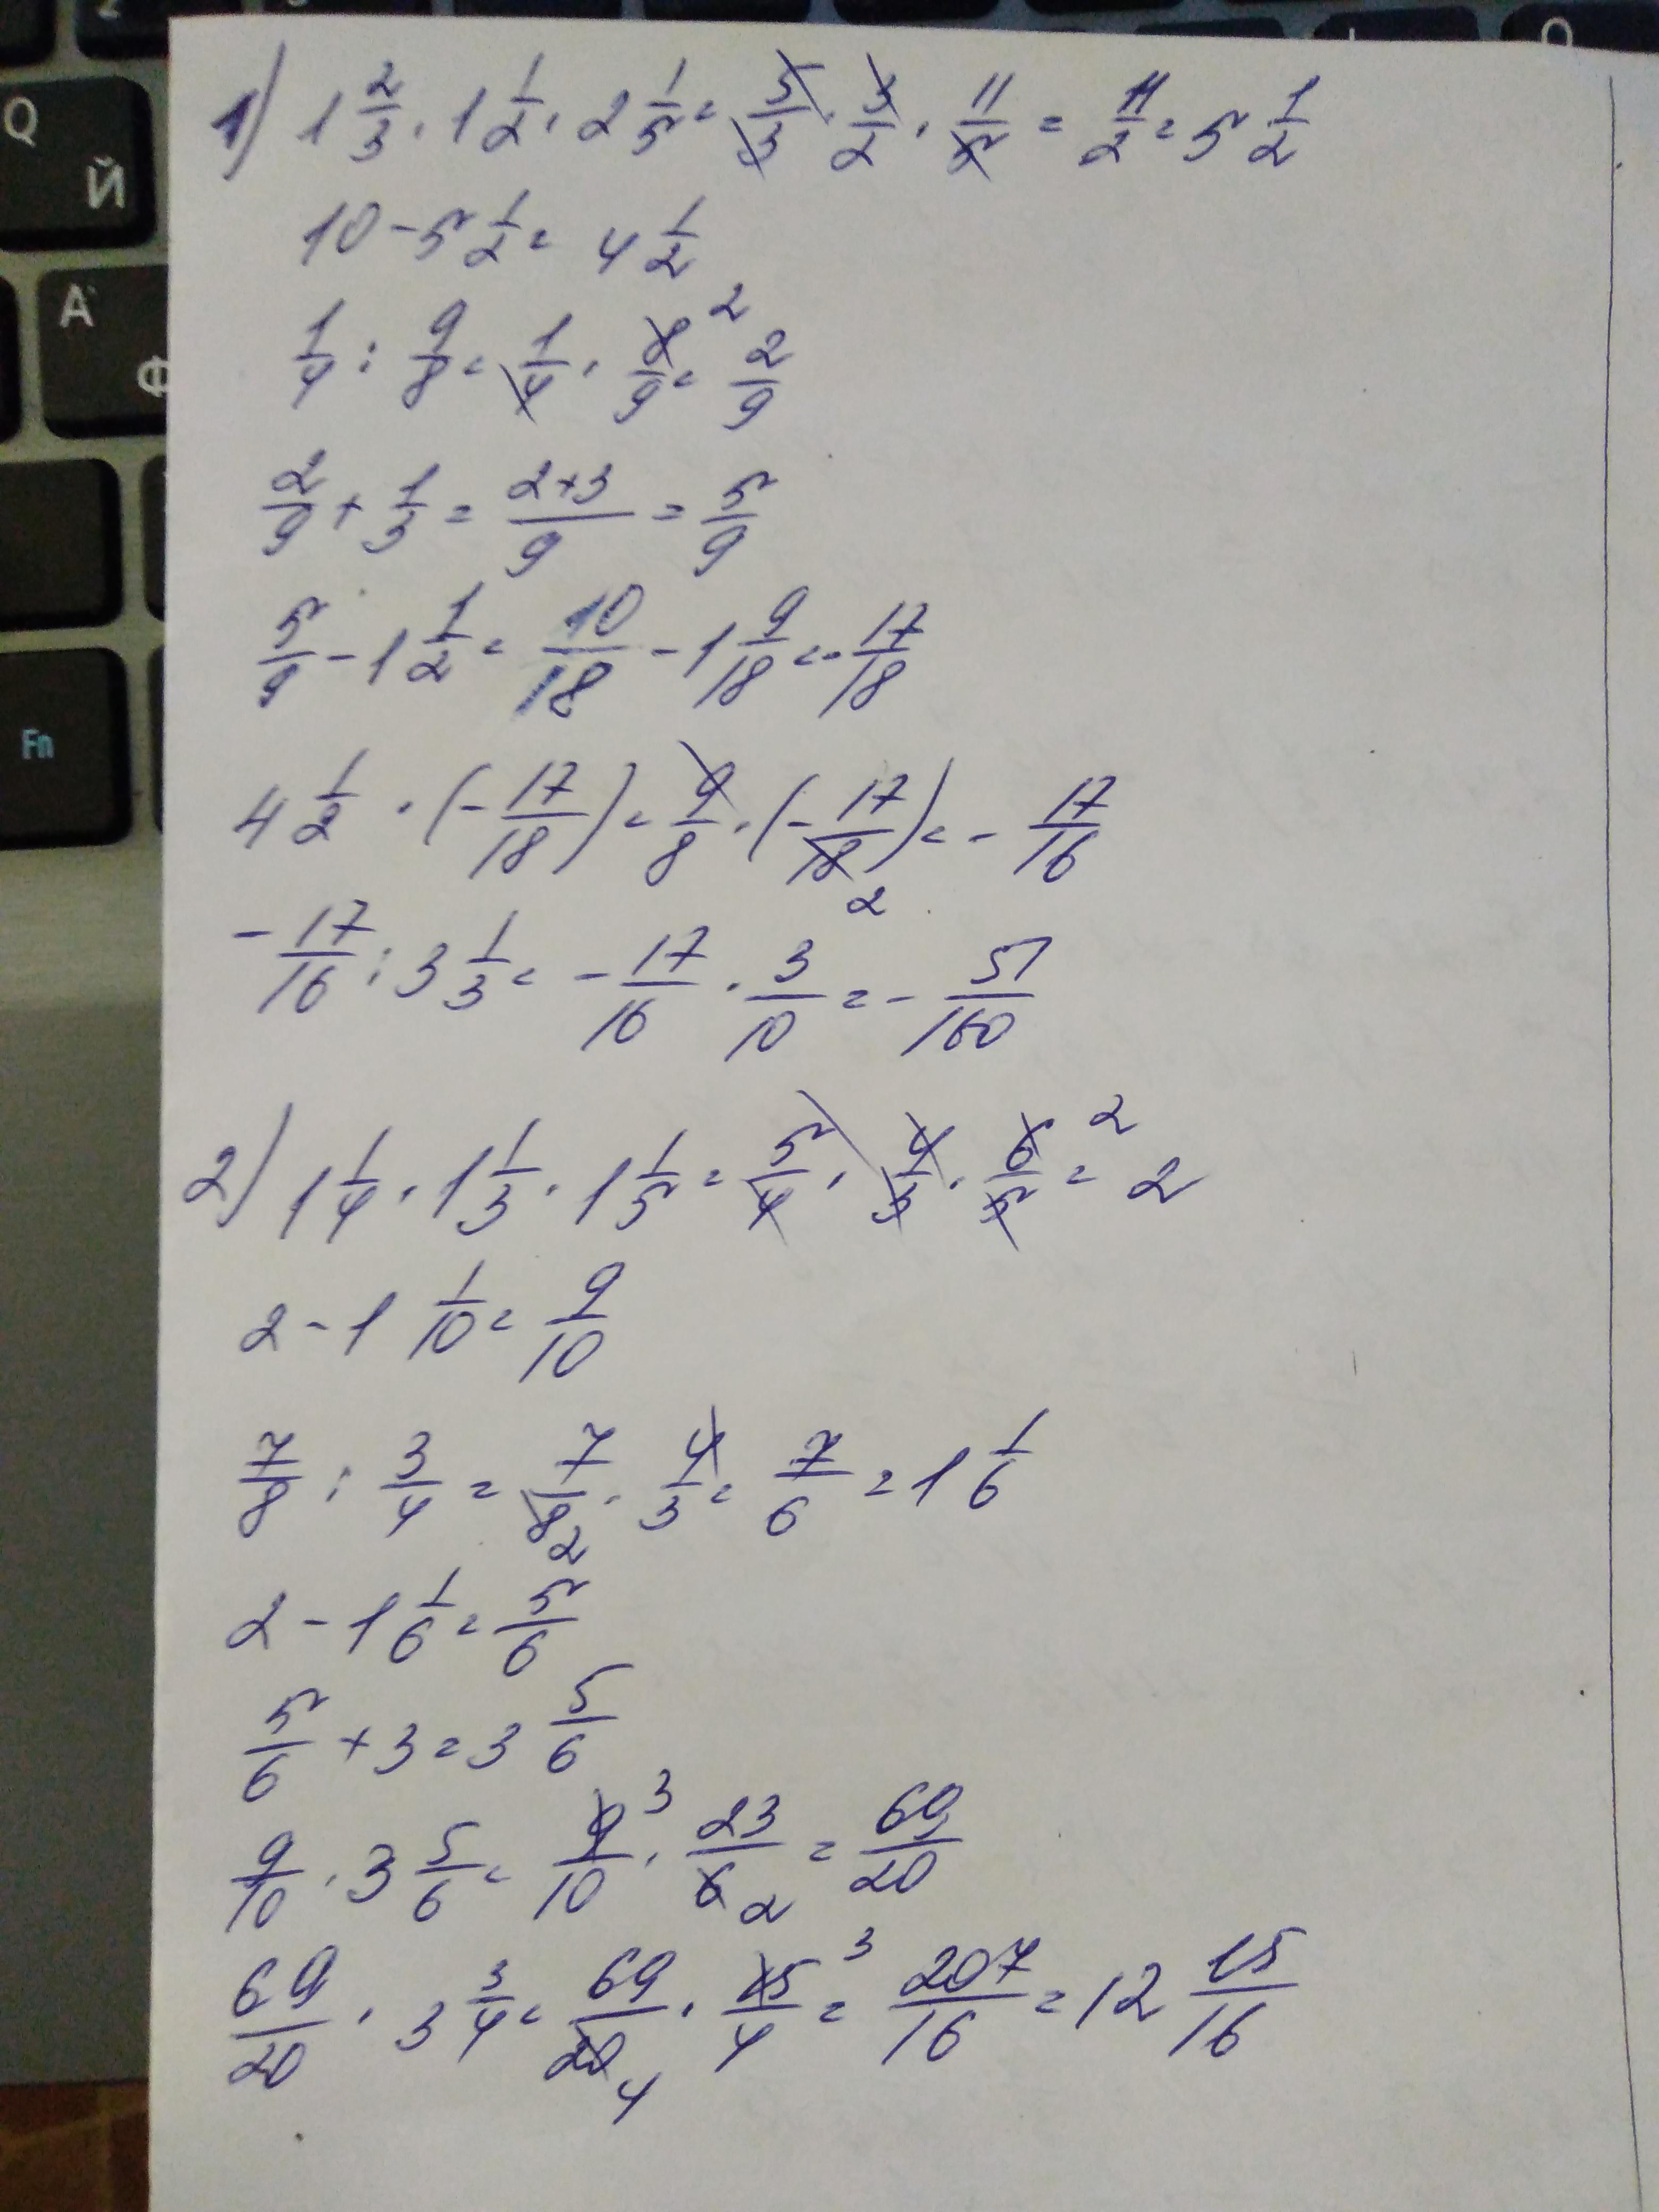 Q
Й
A
Ф
Fn
1) 1 2/3 · 1 1/2 · 2 1/5 = 5/3 · 3/2 · 11/5 = 11/2 = 5 1/2
10 - 5 1/2 = 4 1/2
1/4 : 9/8 = 1/4 · 8/9 = 2/9 2
2/9 + 1/3 = 2+3/9 = 5/9
5/9 - 1 1/2 = 10/18 - 1 9/18 = - 17/18
4 1/2 · (- 17/18) = 9/8 · (- 17/18) = - 17/16
2
- 17/16 : 3 1/3 = - 17/16 · 3/10 = - 51/160
2) 1 1/4 · 1 1/3 · 1 1/5 = 5/4 · 4/3 · 6/5 2 = 2
2 - 1 1/10 = 9/10
7/8 : 3/4 = 7/8 2 · 4/3 = 7/6 = 1 1/6
2 - 1 1/6 = 5/6
5/6 + 3 = 3 5/6
9/10 · 3 5/6 = 9/10 3 · 23/6 2 = 69/20
69/20 · 3 3/4 = 69/20 4 · 15/4 3 = 207/16 = 12 15/16